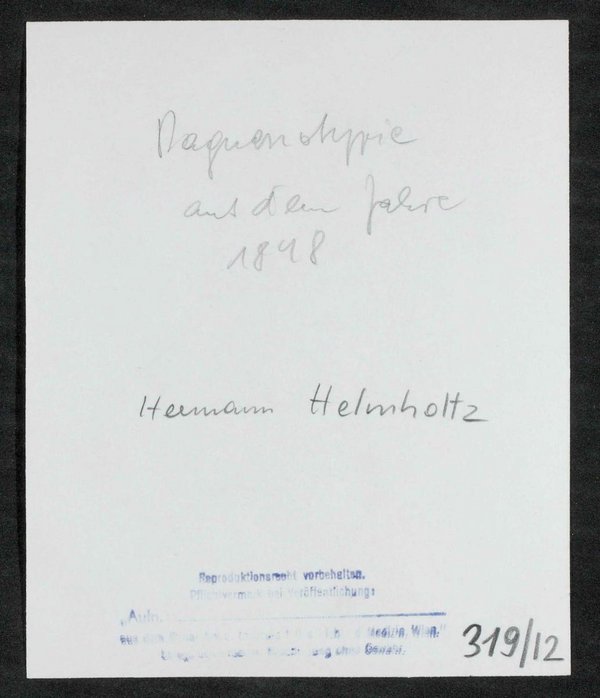 Daguerrotypie
aus dem Jahre
1848
Hermann Helmholtz
Reproduktionsrecht vorbehalten.
Pflichtvermerk bei Veröffentlichung:
„Aufn.
aus dem Medizin, Wien.“
ohne Gewähr.
319/12